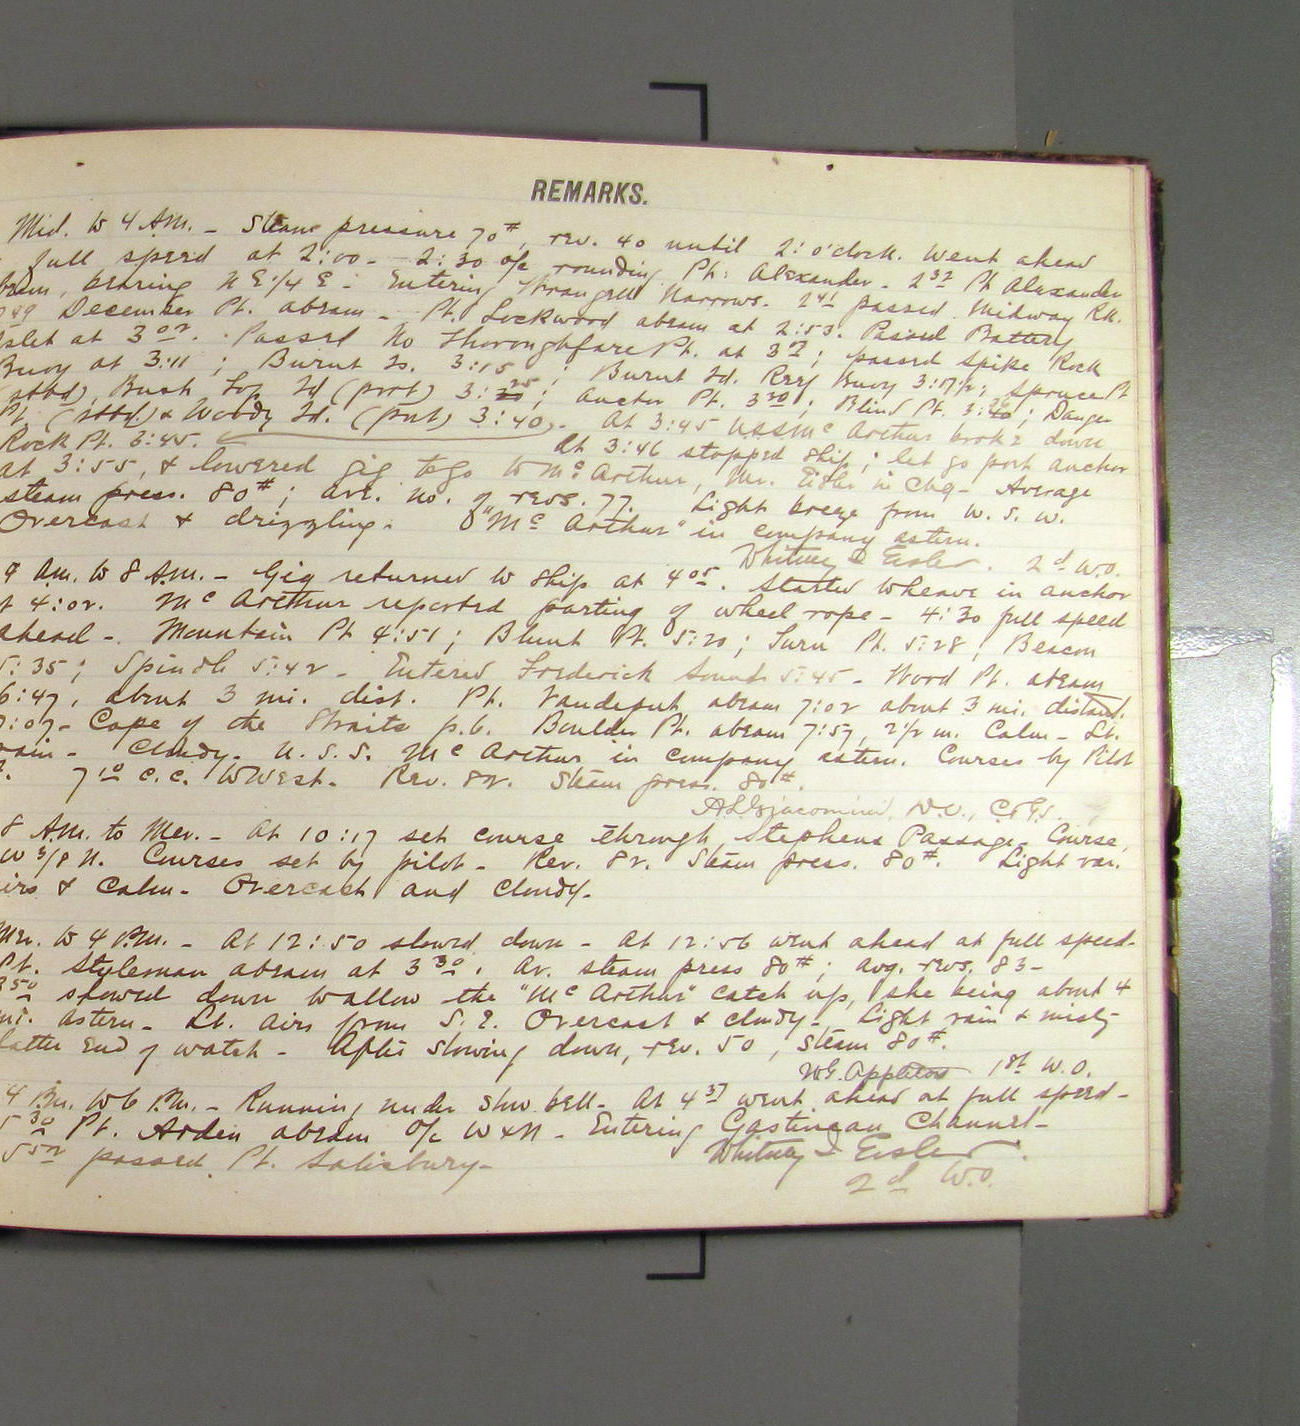 REMARKS.
Mid. to 4 A.M. - Steam pressure 70#, rev. 40 until 2: o'clock. Went ahead
full speed at 2:00 - 2:30 o/c rounding Pt. Alexander - 2 32 Pt Alexander
abeam, bearing N E 1/4 E - Entering Wrangell Narrows. 2 41 passed Midway Rk.
2 49 December Pt. abeam - Pt. Lockwood abeam at 2:53. Passed Battery
Islet at 3 02. Passed No Thoroughfare Pt. at 3 07; passed Spike Rock
Buoy at 3:11; Burnt Is. 3:15; Burnt Id. Reef Buoy 3:17 1/2; Spruce Pt
(stbd), Bush Top Id (port) 3:25; Anchor Pt. 3 30; Blind Pt. 3:36; Danger
Pt. (stbd) & Woody Id. (port) 3:40. At 3:45 USS Mc Arthur broke down
Rock Pt. 3:45. At 3:46 stopped ship; let go port anchor
at 3:55, & lowered gig to go to Mc Arthur, Mr. Eisler in chg - Average
steam press. 80#; ave. no. of revs. 77. Light breeze from W. S. W.
Overcast & drizzling. "Mc Arthur" in company astern.
Whitney I Eisler. 2d W.O.
4 AM. to 8 A.M. - Gig returned to ship at 4 05. Started to heave in anchor
at 4:02. Mc Arthur reported parting of wheel rope - 4:30 full speed
ahead - Mountain Pt 4:51; Blunt Pt. 5:20; Turn Pt. 5:28; Beacon
5:35; Spindle 5:42 - Entered Frederick Sound 5:45 - Wood Pt. abeam
6:47, about 3 mi. dist. Pt. Vandeput abeam 7:02 about 3 mi. distant.
7:07 - Cape of the Straits p.b. Boulder Pt. abeam 7:57, 2 1/2 m. Calm - Lt.
rain - Cloudy. U. S. S. Mc Arthur in company astern. Courses by Pilot
7 10 c.c. to West. Rev. 82. Steam press. 80#.
A L Giacomini, D.O., C&GS.
8 A.M. to Mer. - At 10:17 set course through Stephens Passage. Course,
W 3/8 N. Courses set by pilot - Rev. 82. Steam press. 80#. Light var.
airs & calm - Overcast and cloudy.
Mer. to 4 P.M. - At 12:50 slowed down - At 12:56 went ahead at full speed -
Pt. Styleman abeam at 3 30. Av. steam press 80#; avg. revs. 83 -
3 50 slowed down to allow the "Mc Arthur" catch up, she being about 4
mi. astern - Lt. airs from S. E. Overcast & cloudy - Light rain & misty
latter end of watch - After slowing down, rev. 50, steam 80#.
W.E. Appleton 1st W.O.
4 P.M. to 6 P.M. - Running under slow bell - At 4 37 went ahead at full speed -
5 30 Pt. Arden abeam o/c W x N - Entering Gastineau Channel -
5 52 passed Pt. Salisbury - Whitney I Eisler.
2d W.O.